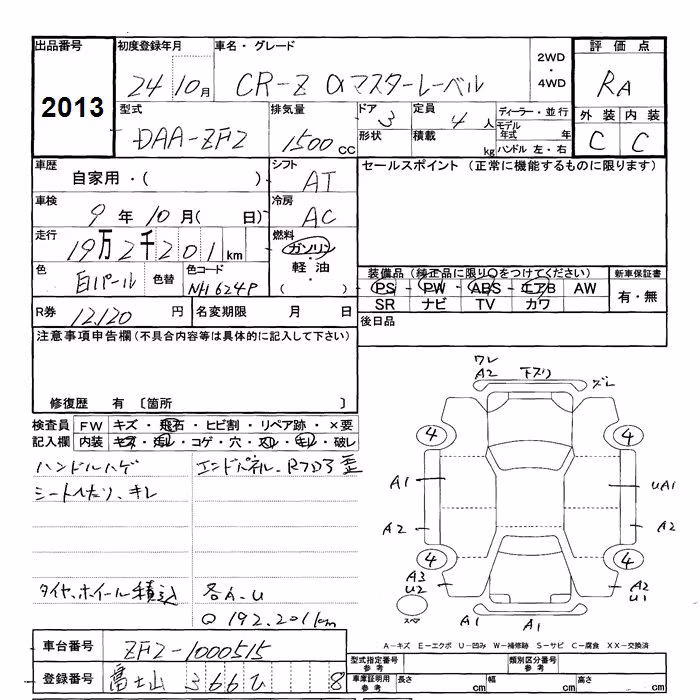 出品番号 2013
初度登録年月 24 10月
車名・グレード CR-Z αマスターレーベル
2WD ・ 4WD
評価点 RA
外装 C 内装 C
型式 DAA-ZF2
排気量 1500 CC
ドア 3 形状
定員 4人 積載 kg
ディーラー・並行
モデル年式 年
ハンドル 左・右
車歴 自家用・( )
シフト AT
セールスポイント (正常に機能するものに限ります)
車検 9年10月( 日)
冷房 AC
走行 19万2千201km
燃料 ガソリン ・軽油・ ( )
色 白パール 色替
色コード NH624P
装備品(純正品に限り○をつけてください)
新車保証書 有・無
PS ・ PW ・ ABS ・ エアB AW
SR ナビ TV カワ
R券 12,120 円
名変期限 月 日
後日品
注意事項申告欄(不具合内容等は具体的に記入して下さい)
修復歴 有 〔箇所 〕
検査員記入欄
FW キズ・飛石・ヒビ割・リペア跡・×要
内装 キズ・汚レ・コゲ・穴・スレ・キレ・破レ
ハンドルハゲ
シートヘたり、キレ
エンドパネル、Rフロア歪
タイヤ、ホイール積込
各A.U
Q 192,201km
ワレ
A2 下スリ ズレ
4 4
A1 UA1
A2 A2
4 4
A3 U2 A2 U1
スペ A1 A1
A-キズ E-エクボ U-凹み W-補修跡 S-サビ C-腐食 XX-交換済
車台番号 ZF2-1000515
登録番号 富士山 366 ひ 8
型式指定番号 参考
類別区分番号 参考
車庫証明用 参考 長さ cm 幅 cm 高さ cm